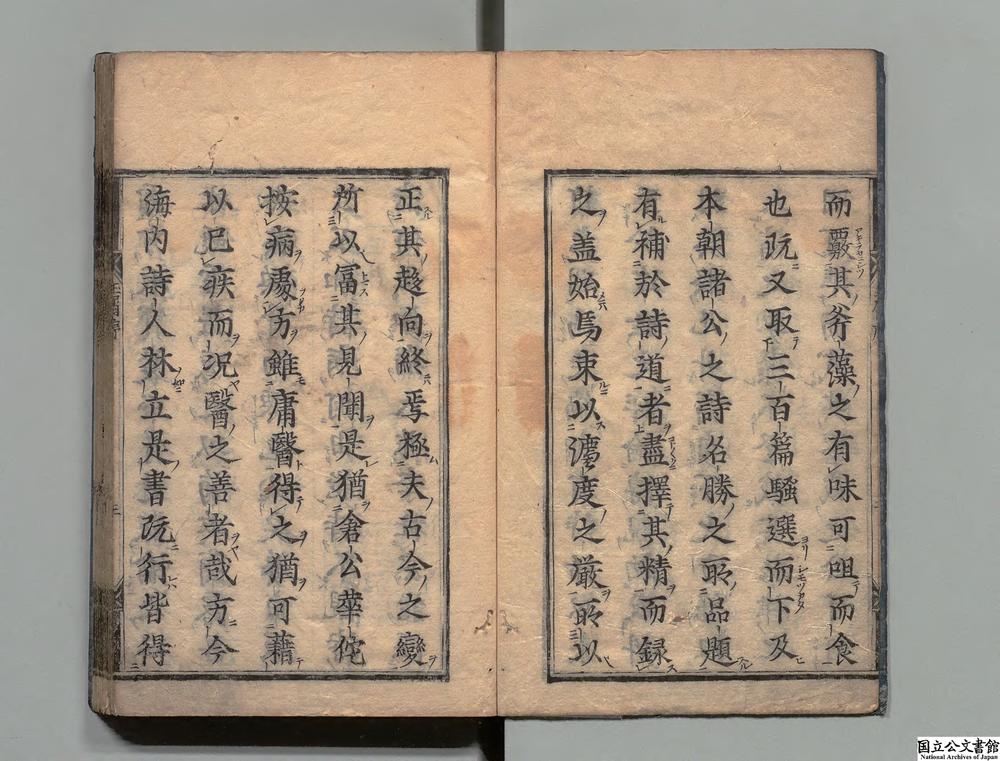 而覈其芳藻之有味可咀而食
也既又取三百篇騷選而下及
本朝諸公之詩名勝之所品題
有補於詩道者盡擇其精而録
之盖始焉束以灋度之厳所以
正其趍向終焉極夫古今之變
所以冨其見聞是猶倉公華佗
按病處方雖庸醫得之猶可藉
以已疾而况醫之善者哉方今
海内詩人林立是書既行皆得
国立公文書館
National Archives of Japan